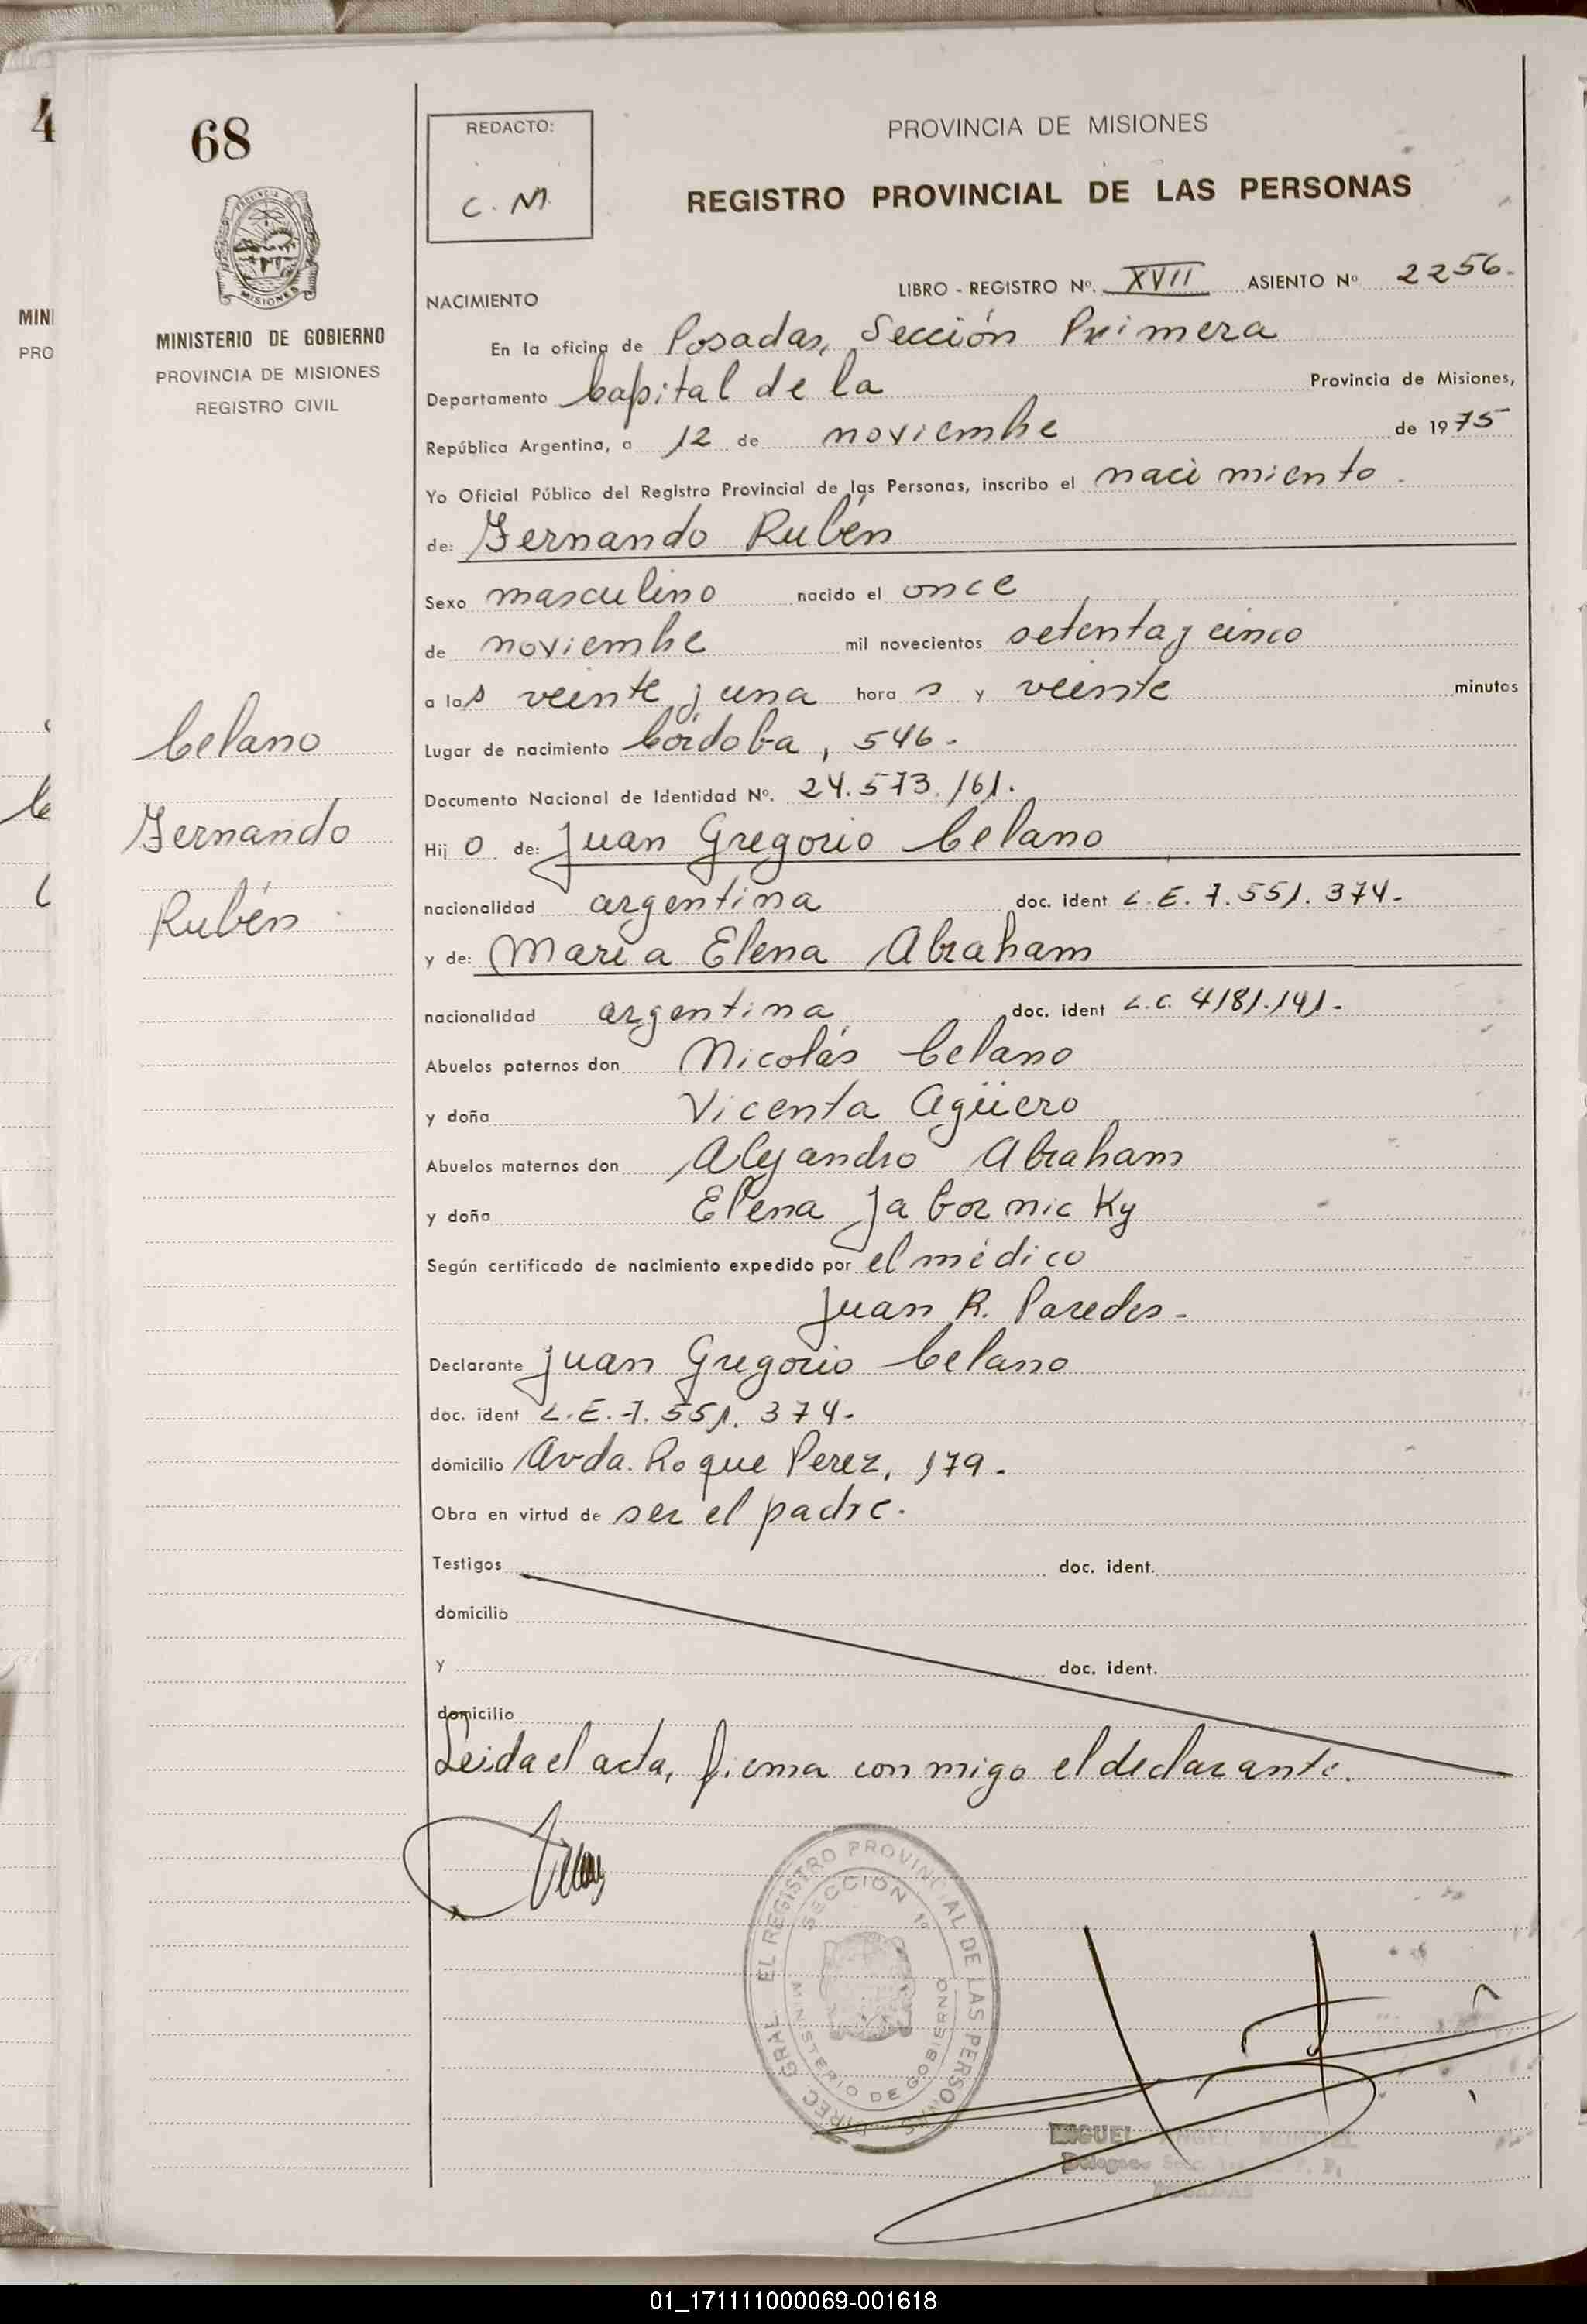 4
68
REDACTO:
C. M.
PROVINCIA DE MISIONES
REGISTRO PROVINCIAL DE LAS PERSONAS
PROVINCIA DE
MISIONES
MINISTERIO DE GOBIERNO
PROVINCIA DE MISIONES
REGISTRO CIVIL
MINI
PRO
LIBRO - REGISTRO Nº. XVII ASIENTO Nº 2256.
NACIMIENTO
En la oficina de Posadas, Sección Primera
Departamento Capital de la Provincia de Misiones,
República Argentina, a 12 de noviembre de 1975
Yo Oficial Público del Registro Provincial de las Personas, inscribo el nacimiento.
de: Fernando Rubén
Sexo masculino nacido el once
de noviembre mil novecientos setenta y cinco
a las veinte y una horas y veinte minutos
Lugar de nacimiento Córdoba, 546.
Documento Nacional de Identidad Nº. 24.573.161.
Hijo de: Juan Gregorio Celano
nacionalidad argentina doc. ident L.E. 7.551.374.
y de: María Elena Abraham
nacionalidad argentina doc. ident L.C. 4181.141.
Abuelos paternos don Nicolás Celano
y doña Vicenta Agüero
Abuelos maternos don Alejandro Abraham
y doña Elena Jabornicky
Según certificado de nacimiento expedido por el médico
Juan R. Paredes.
Declarante Juan Gregorio Celano
doc. ident L.E. 7.551.374.
domicilio Avda. Roque Perez, 179.
Obra en virtud de ser el padre.
Testigos doc. ident.
domicilio
y doc. ident.
domicilio
Leida el acta, firma conmigo el declarante.
Celano
Fernando
Rubén
DIREC. GRAL. EL REGISTRO PROVINCIAL DE LAS PERSONAS
SECCION 1º
MINISTERIO DE GOBIERNO
MIGUEL ANGEL
01_171111000069-001618